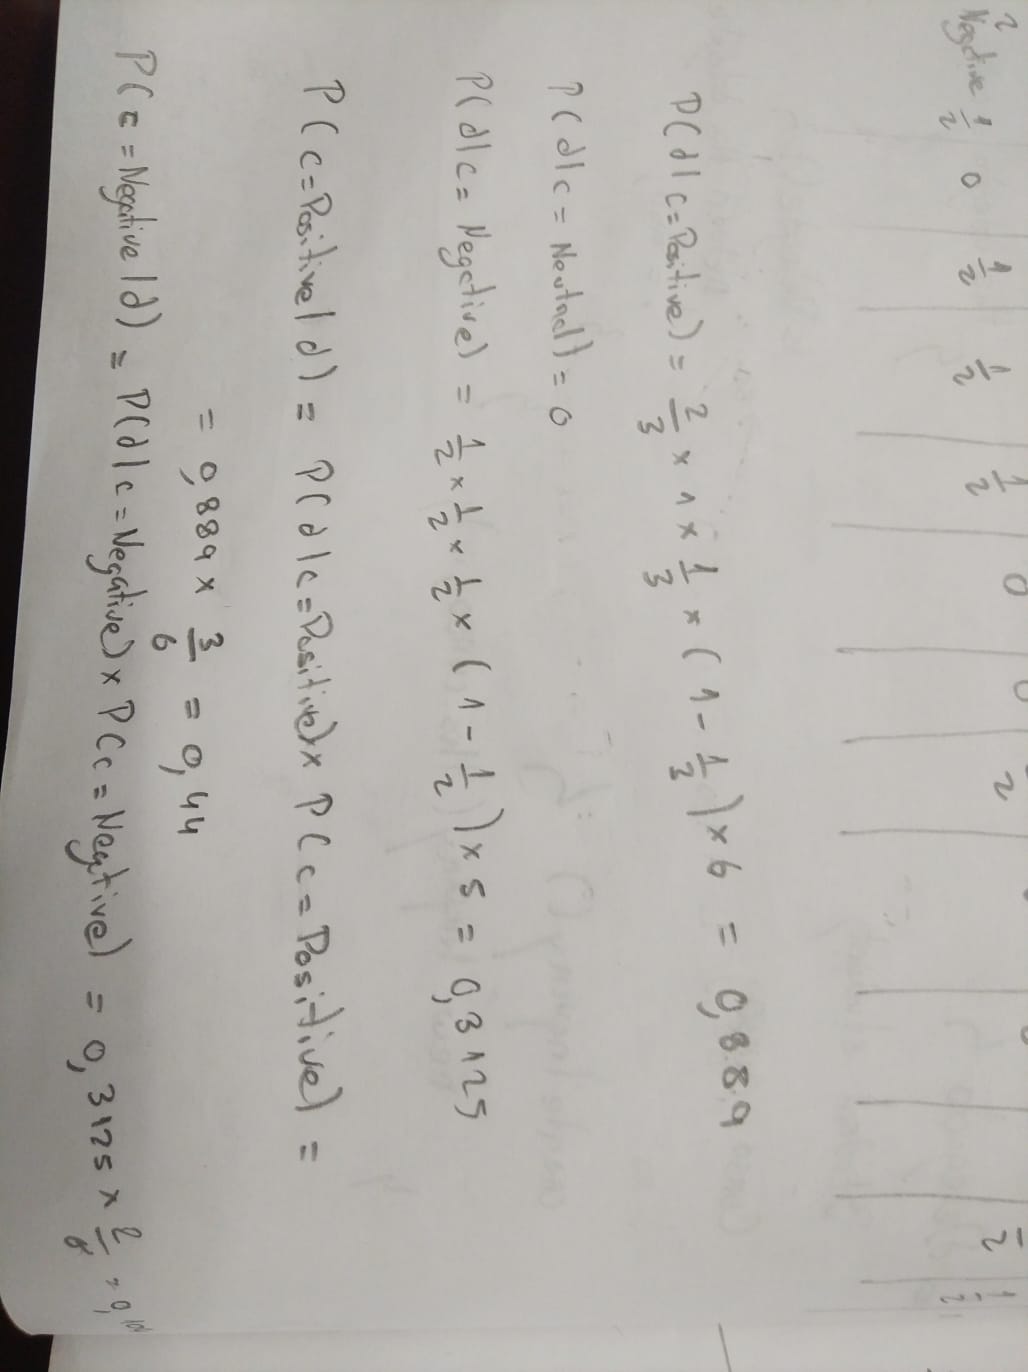 2
Negative 1/2 0 1/2 1/2 1/2 0 2 1/2
P(d|c=Positive) = 2/3 x 1 x 1/3 x (1 - 1/3) x 6 = 0,889
P(d|c = Neutral) = 0
P(d|c = Negative) = 1/2 x 1/2 x 1/2 x (1 - 1/2) x 5 = 0,3125
P(c=Positive|d) = P(d|c=Positive) x P(c=Positive) =
= 0,889 x 3/6 = 0,44
P(c=Negative|d) = P(d|c=Negative) x P(c=Negative) = 0,3125 x 2/6 = 0,10